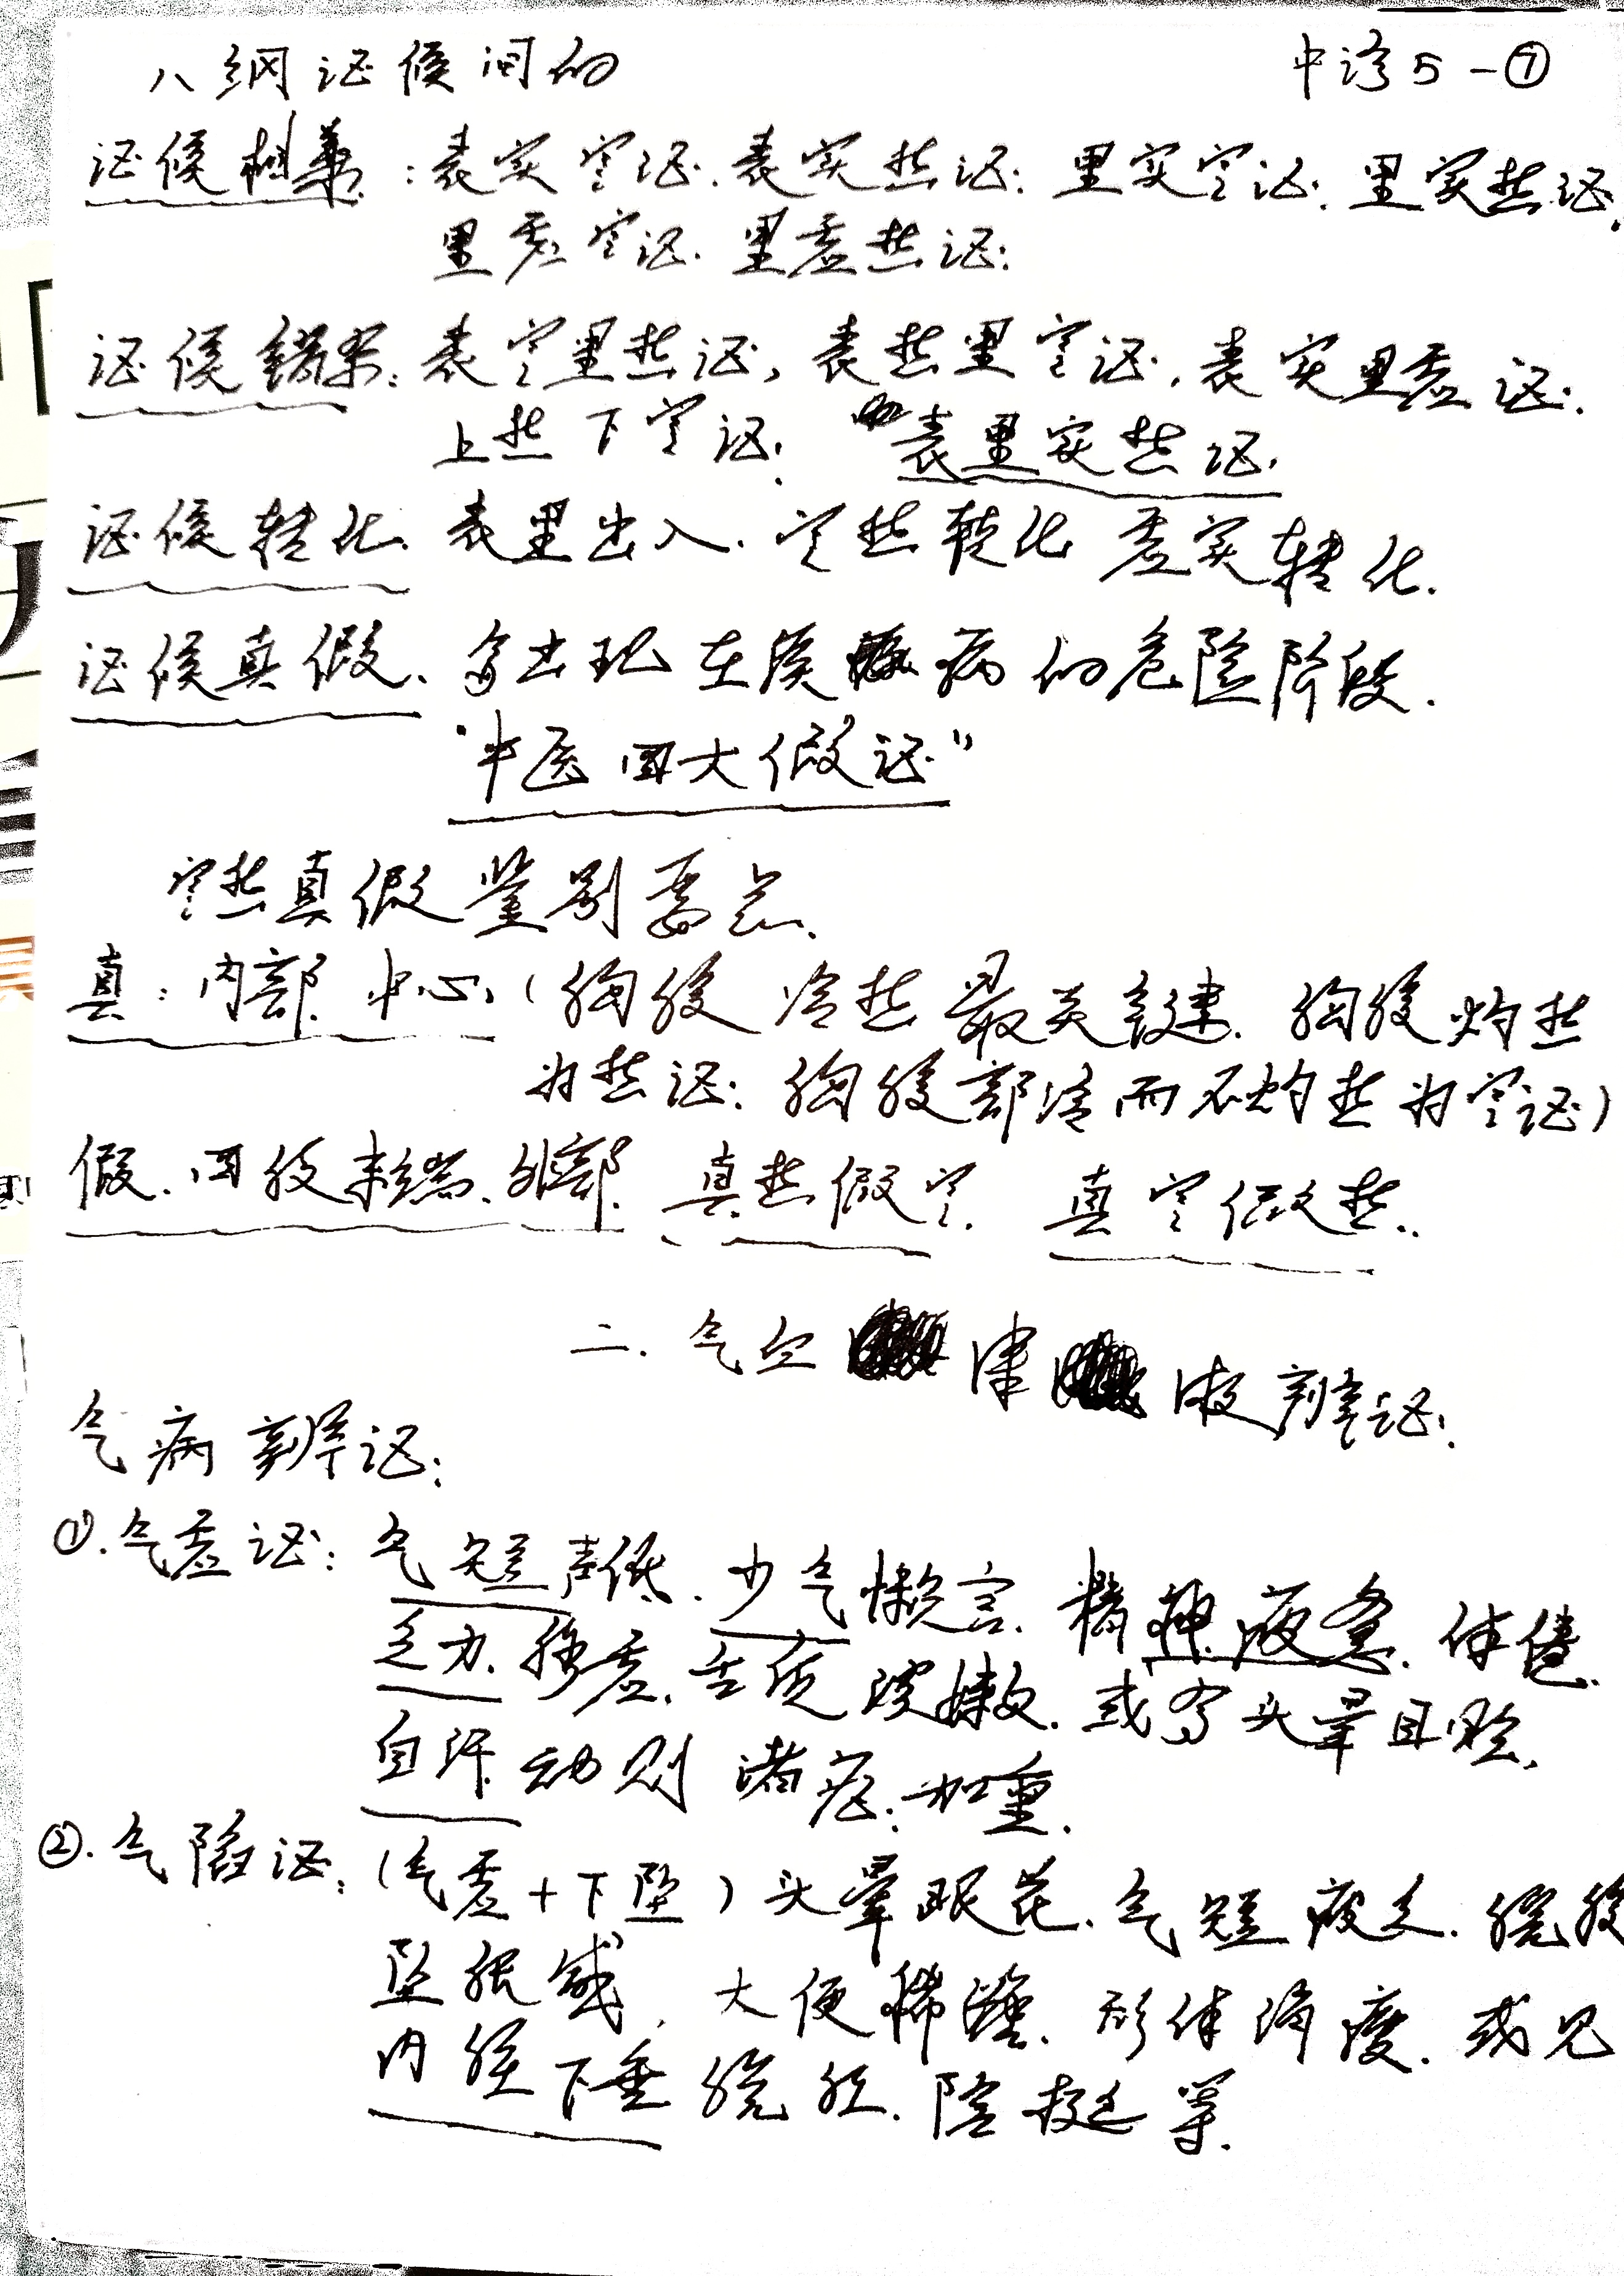 八纲证候间的
中诊5-⑦
证候相兼:表实寒证.表实热证:里实寒证.里实热证.
里虚寒证.里虚热证:
证候错杂:表寒里热证,表热里寒证.表实里虚证:
上热下寒证: 表里实热证.
证候转化.表里出入.寒热转化 虚实转化.
证候真假.多出现在疾病的危险阶段.
"中医四大假证"
寒热真假鉴别要点.
真:内部.中心,(胸腹冷热最关键.胸腹灼热
为热证:胸腹部冷而不灼热为寒证)
假.四肢末端.外部.真热假寒.真寒假热.
二.气血津液辨证.
气病辨证:
①.气虚证:气短声低.少气懒言.精神疲惫.体倦.
乏力.脉虚.舌质淡嫩.或有头晕目眩.
自汗.动则诸症.加重.
②.气陷证:(气虚+下坠)头晕眼花.气短疲乏.脘腹
坠胀感,大便稀溏.形体消瘦.或见
内脏下垂 脱肛.阴挺等.